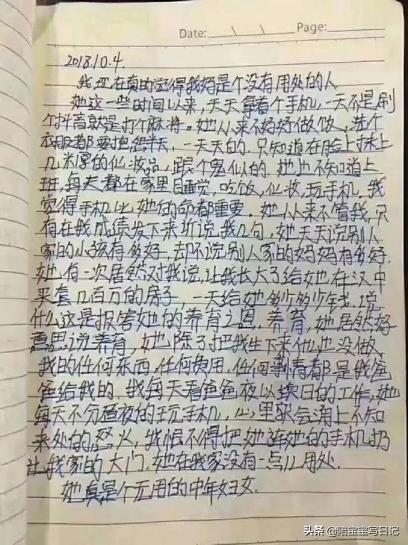 Date: Page:
2018.10.4.
我现在真的觉得我妈是个没有用处的人
她这一些时间以来,天天拿着个手机,一天不是刷
个抖音就是打个麻将。她从来不好好做饭,洗个
衣服都要把半天,一天天的,只知道在脸上抹上
几米厚的化妆品,跟个鬼似的。她也不知道上
班,每天都在家里睡觉,吃饭,化妆,玩手机,我
觉得手机比她的命都重要。她从来不管我,只
有在我成绩发下来讲说我几句,她天天说别人
家的小孩有多好,却不说别人家的妈妈有多好
她有一次居然对我说,让我长大了给她在汉中
买套几百万的房子,一天给她多少多少钱,说
什么这是报答她的养育之恩,养育,她居然好
意思说养育,她除了把我生下来什么也没做,
我的任何东西,任何费用,任何事情都是我爸
爸给我的,我每天看爸爸夜以继日的工作,她
每天不分昼夜的玩手机,心里就会涌上不知
来处的怒火,我恨不得把她连她的手机扔
出我家的大门,她在我家没有一点儿用处.
她真是个无用的中年妇女.
头条 @陪宝宝写日记